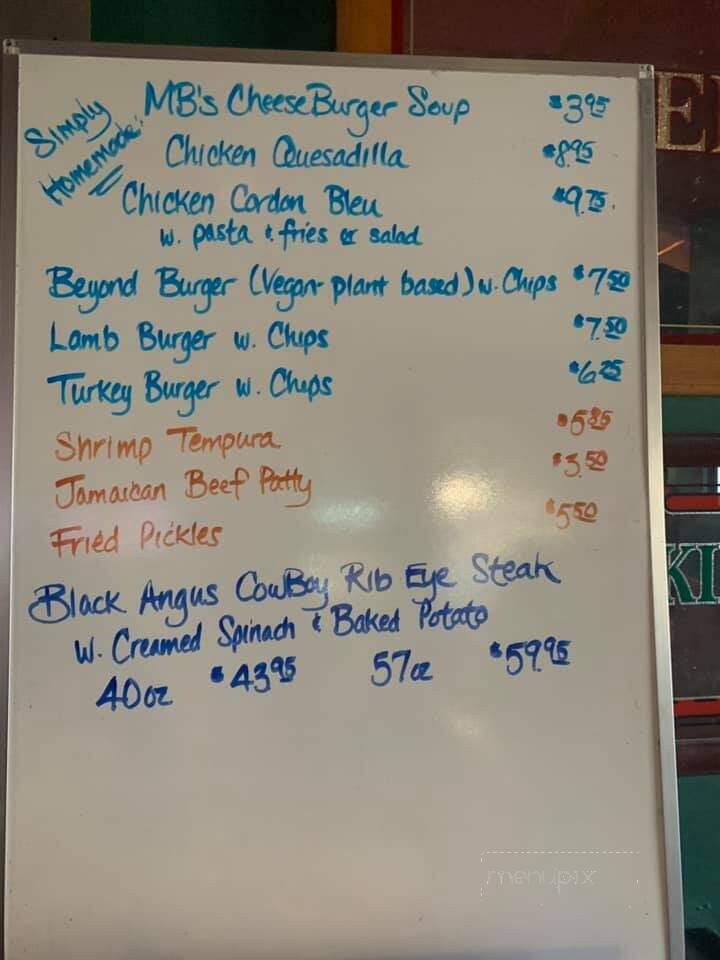 Simply
Homemade!
MB's CheeseBurger Soup $3.95
Chicken Quesadilla $8.95
Chicken Cordon Bleu $9.75.
w. pasta & fries or salad
Beyond Burger (Vegan- plant based) w. Chips $7.50
Lamb Burger w. Chips $7.50
Turkey Burger w. Chips $6.25
Shrimp Tempura
Jamaican Beef Patty $3.50
Fried Pickles $5.50
Black Angus CowBoy Rib Eye Steak
w. Creamed Spinach & Baked Potato
40oz $43.95 57oz $59.95
KI
menupix